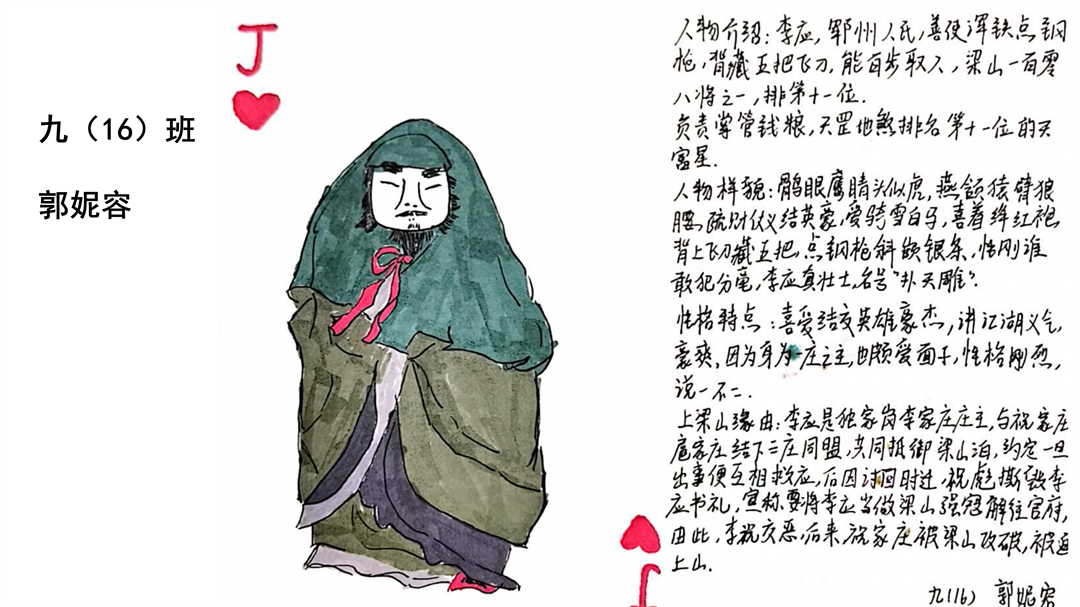 J
九（16）班
郭妮容
人物介绍：李应，郓州人氏，善使浑铁点钢
枪，背藏五把飞刀，能百步取人，梁山一百零
八将之一，排第十一位.
负责掌管钱粮，天罡地煞排名第十一位的天
富星.
人物样貌：鹘眼鹰睛头似虎，燕颔猿臂狼
腰，疏财仗义结英豪，爱骑雪白马，喜着绛红袍，
背上飞刀藏五把，点钢枪斜嵌银条，性刚谁
敢犯分毫，李应真壮士，名号“扑天雕”.
性格特点：喜爱结交英雄豪杰，讲江湖义气，
豪爽，因为身为一庄之主，也颇爱面子，性格刚烈，
说一不二.
上梁山缘由：李应是独家岗李家庄庄主，与祝家庄
扈家庄结下三庄同盟，共同抵御梁山泊，约定一旦
出事便互相救应，后因讨回时迁，祝彪撕毁李
应书礼，宣称要将李应当做梁山强寇解往官府，
由此，李祝交恶，后来祝家庄被梁山攻破，被逼
上山.
九(16) 郭妮容
J